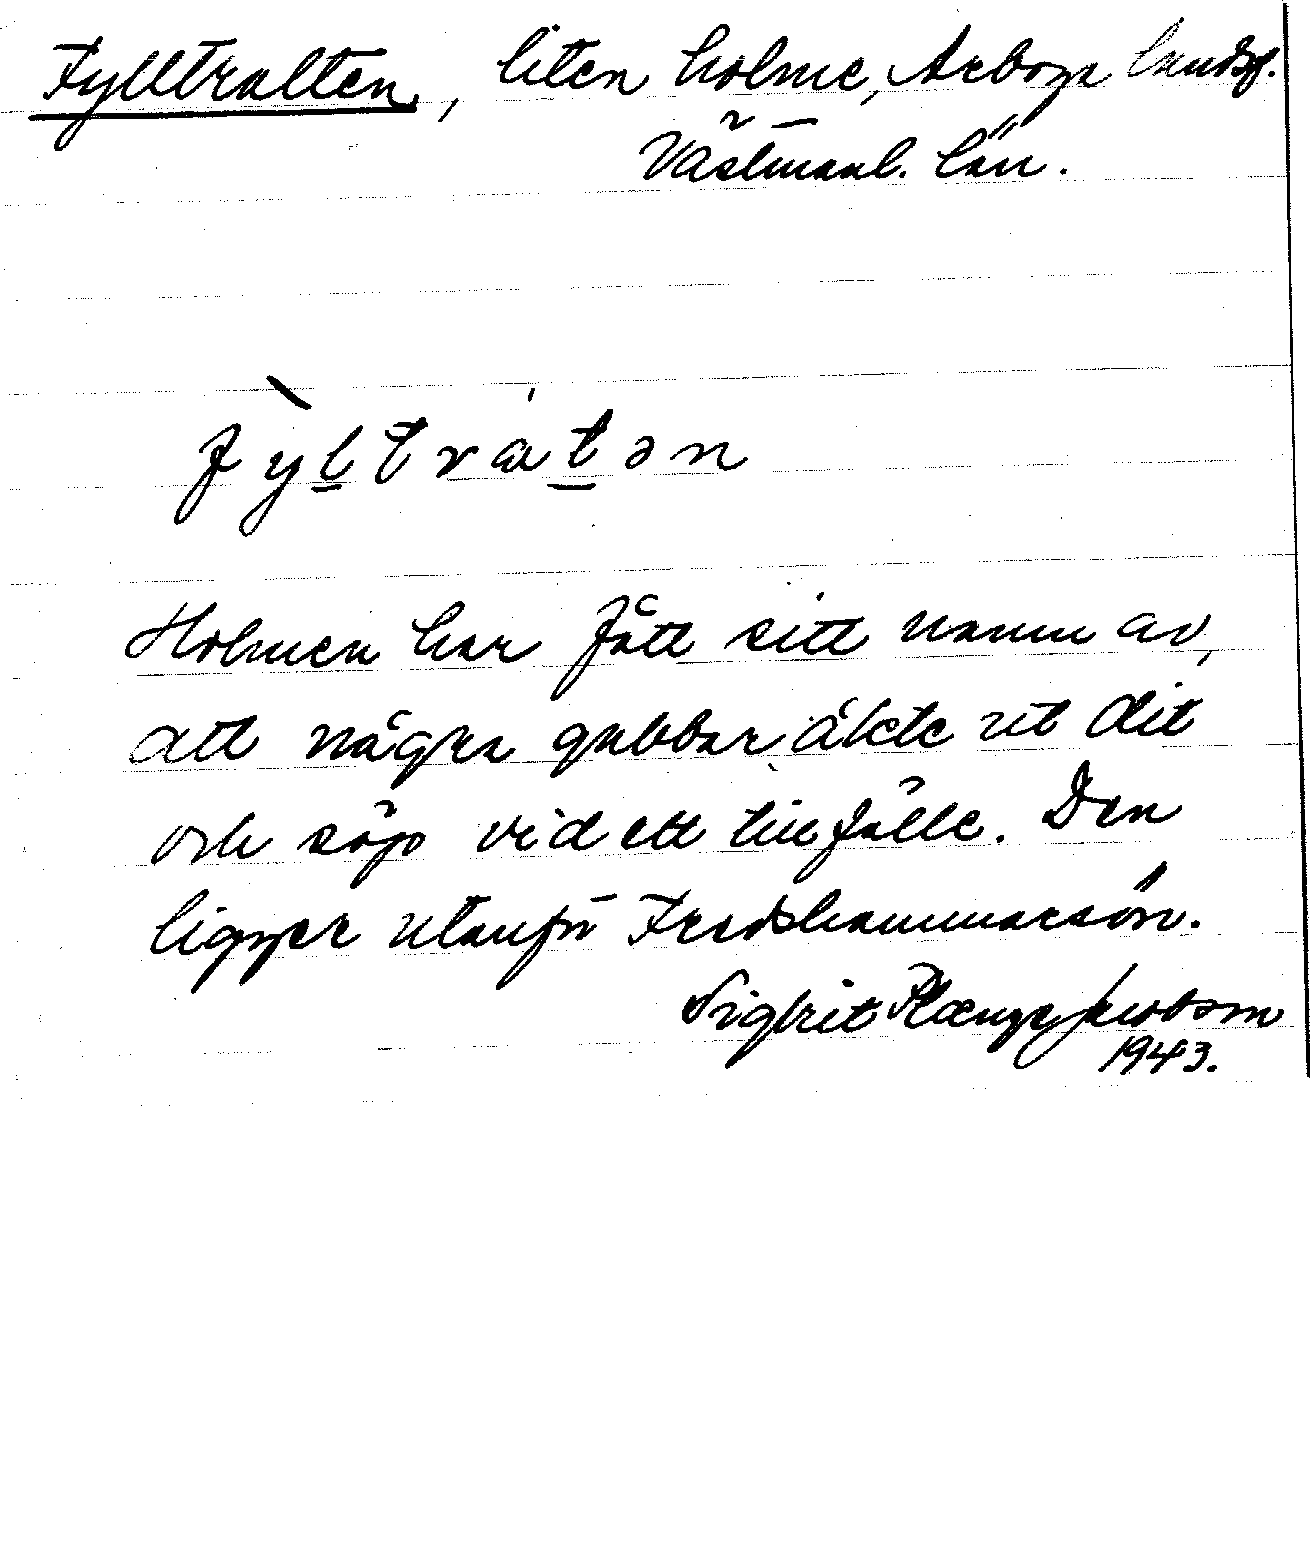 Fylltratten, liten holme, Arboga landsf.
Västmanl. län.
fỳltrátən
Holmen har fått sitt namn av,
att några gubbar åkte ut dit
och söp vid ett tillfälle. Den
ligger utanför Fredshammarsön.
Sigfrit Jacobson
1943.